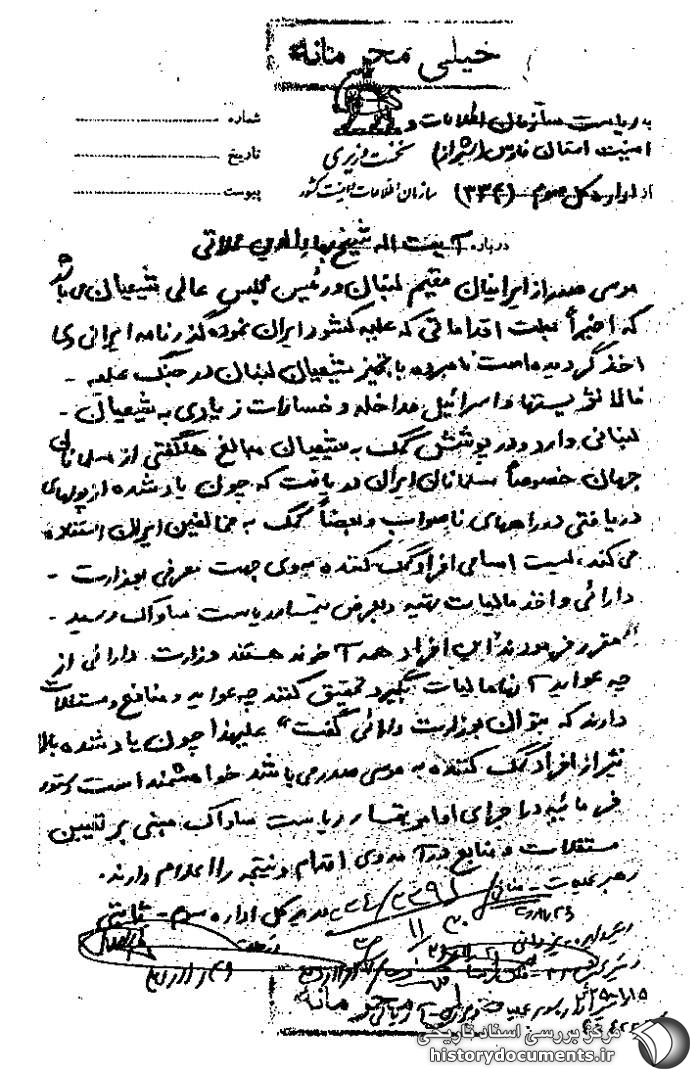 خیلی محرمانه
به ریاست سازمان اطلاعات و
امنیت استان فارس (شیراز)
نخست وزیری
شماره
تاریخ
از اداره کل سوم (۳۳۴) سازمان اطلاعات و امنیت کشور
پیوست
درباره آیت اله شیخ بهاءالدین محلاتی
موسی صدر از ایرانیان مقیم لبنان و رئیس مجلس عالی شیعیان می باشد
که اخیراً بعلت اقداماتی که علیه کشور ایران نموده گذرنامه ایرانی وی
اخذ گردیده است نامبرده با شیعیان لبنان در جنگ علیه -
فالانژیستها و اسرائیل مداخله و خسارات زیادی به شیعیان -
لبنانی وارد و در پوشش کمک به شیعیان مبالغ هنگفتی از مسلمانان
جهان خصوصاً مسلمانان ایران دریافت که چون یاد شده از پولهای
دریافتی در راههای ناصواب و بعضاً کمک به مخالفین ایران استفاده
می کند، لیست اسامی افراد کمک کننده بوی جهت معرفی بوزارت -
دارائی و اخذ مالیات تهیه و بعرض تیمسار ریاست ساواک رسید -
مقرر فرمودند "این افراد همه آخوند هستند وزارت دارائی از
چه عواید آنها مالیات بگیرد تحقیق کنند چه عواید و منافع و مستغلات
دارند که بتوان بوزارت دارائی گفت" علیهذا چون یاد شده بالا
نیز از افراد کمک کننده به موسی صدر می باشد خواهشمند است دستور
فرمائید در اجرای اوامر تیمسار ریاست ساواک مبنی بر تعیین
مستغلات و منابع درآمد وی اقدام و نتیجه را اعلام دارند.
رهبر عملیات -
مدیر کل اداره سوم - ثابتی
محرمانه
مرکز بررسی اسناد تاریخی
historydocuments.ir